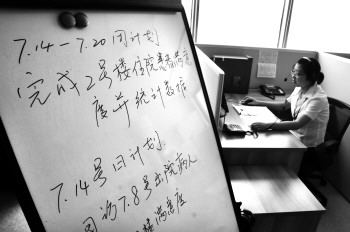 7.14—7.20周计划
完成2号楼住院患者满意
度并统计数据
7.14号日计划
回访7.8号出院病人
满意度